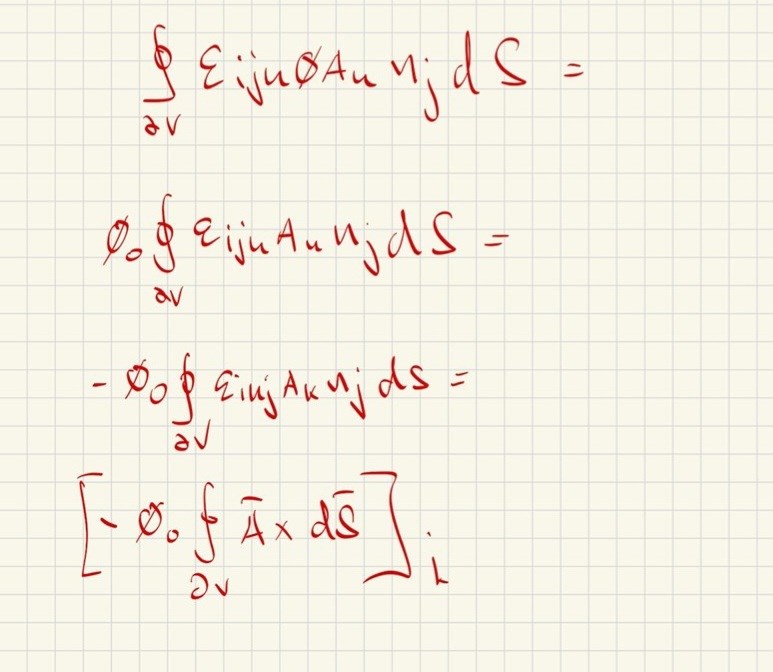 ∮_{∂V} ε_{ijk} ϕ A_k n_j dS =
ϕ₀ ∮_{∂V} ε_{ijk} A_k n_j dS =
- ϕ₀ ∮_{∂V} ε_{ikj} A_k n_j dS =
[- ϕ₀ ∮_{∂V} Ā × dS̄]_i